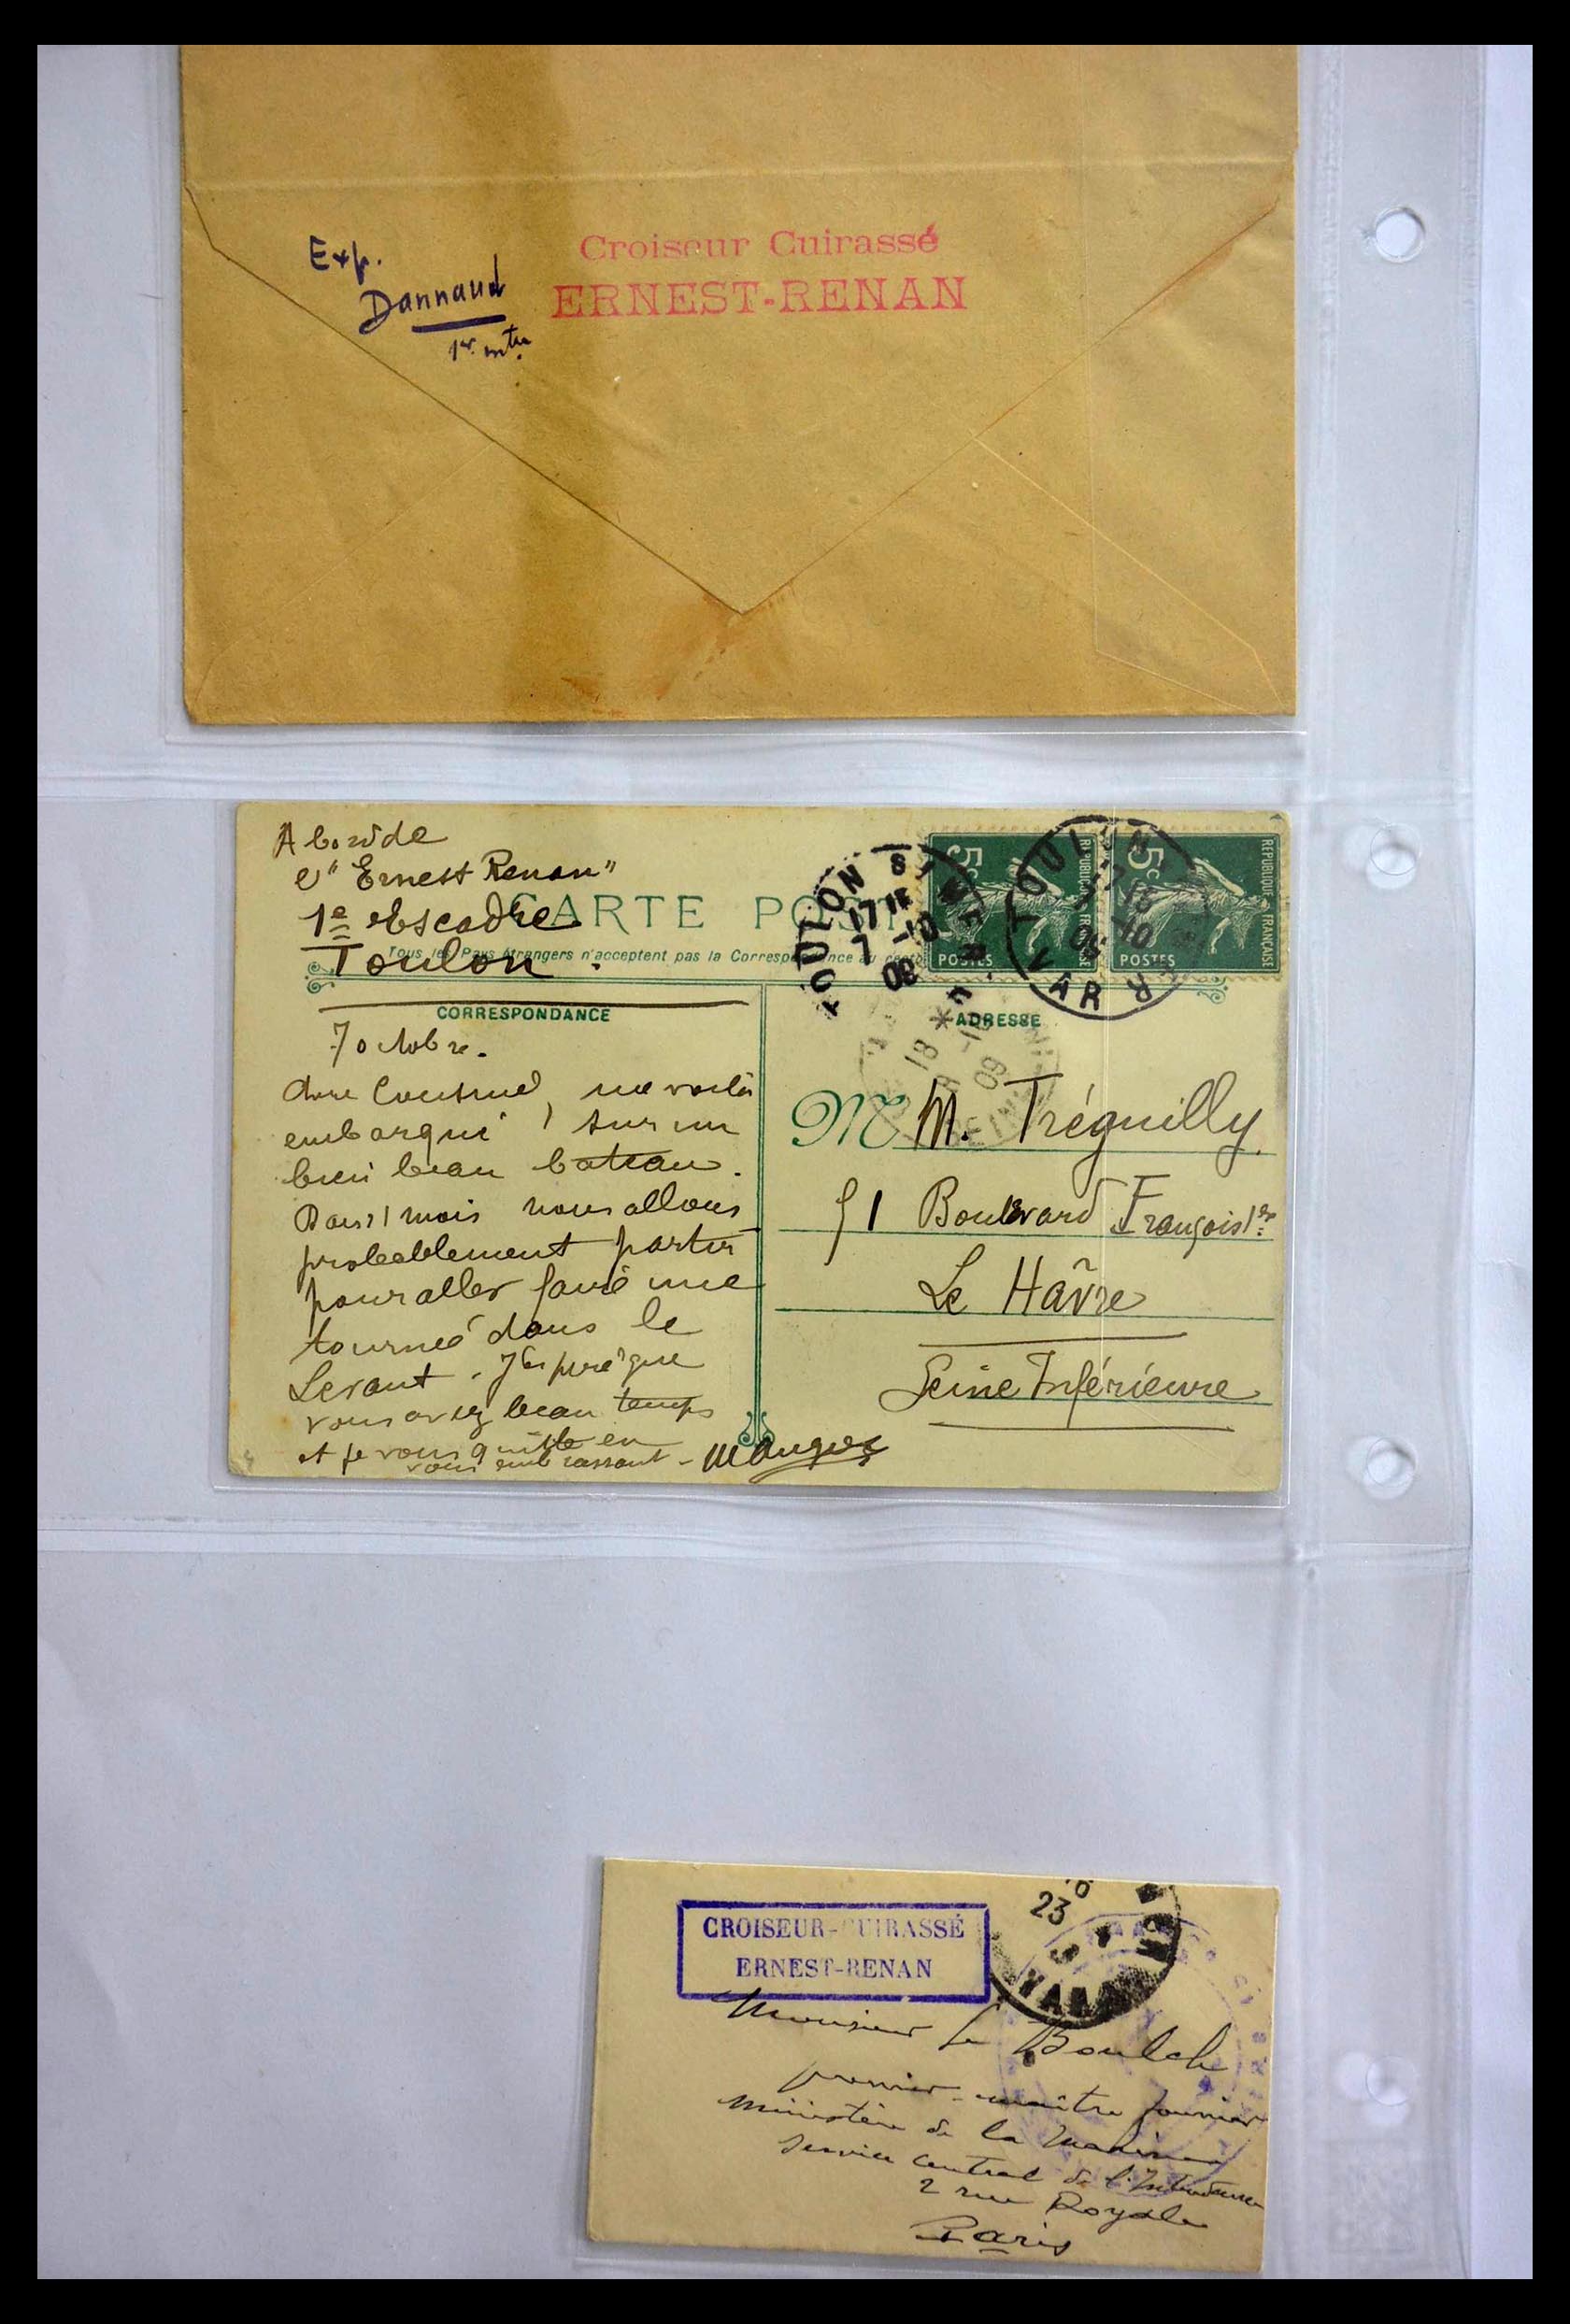 Exp.
Dannaud
1er mtre
Croiseur Cuirassé
ERNEST-RENAN
A bord de
l'"Ernest Renan"
1e Escadre
Toulon.
CARTE POSTALE
Tous les Pays étrangers n'acceptent pas la Correspondance au recto
REPUBLIQUE FRANÇAISE
5c
POSTES
REPUBLIQUE FRANÇAISE
5c
POSTES
TOULON S MER
17 15
7 -10
09
TOULON
7 -10
09
VAR
18
-10
09
CORRESPONDANCE
ADRESSE
7 octobre.
me voilà
embarqué sur un
bien beau bateau.
Dans 1 mois nous allons
probablement partir
pour aller faire une
tournée dans le
Levant. J'espère que
vous avez beau temps
et je vous quitte en
vous embrassant -
M M. Tréguilly
51 Boulevard François 1er
Le Hâvre
Seine Inférieure
CROISEUR-CUIRASSÉ
ERNEST-RENAN
23
Monsieur Le Boulch
premier-maître fourrier
Ministère de la Marine
Service Central de l'Intendance
2 rue Royale
Paris